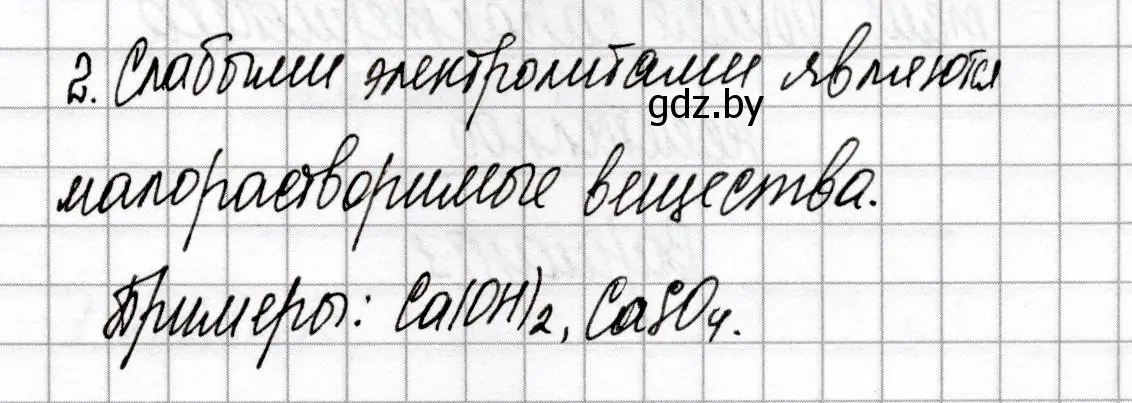 2. Слабыми электролитами являются
gdz.by
малорастворимые вещества.
Примеры: Ca(OH)2, CaSO4.